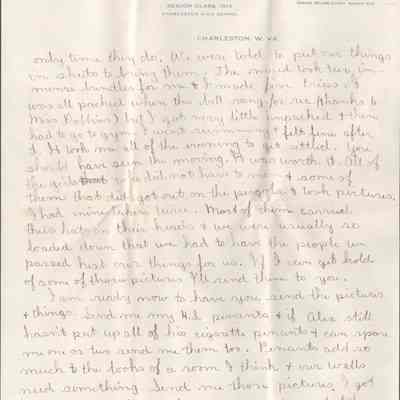 SENIOR CLASS, 1914
CHARLESTON HIGH SCHOOL
CHARLESTON, W. VA.
only time they do. We were told to put our things
in sheets to bring them. The maid took two im-
mense bundles for me & I made five trips. I
was all packed when the bell rang for us (thanks to
Miss Robbins) but I got very little unpacked & then
had to go to gym. I went swimming & felt fine after
it. It took me all of the evening to get settled. You
should have seen the moving. It was worth it. All of
the girls that did not have to move & some of
them that did got out on the pergola & took pictures.
I had mine taken twice. Most of them carried
their hats on their heads & we were usually so
loaded down that we had to have the people we
passed hist our things for us. If I can get hold
of some of those pictures I'll send them to you.
I am ready now to have you send the pictures
& things. Send me my H.S. penants & if Alex still
hasn't put up all of his cigarette penants & can spare
me one or two send me them too. Penants add so
much to the looks of a room I think & our walls
need something. Send me those pictures I got